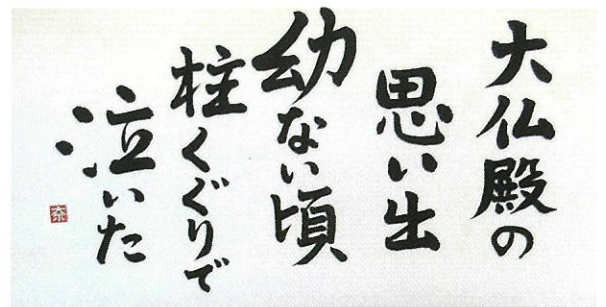 大仏殿の
思い出
幼ない頃
柱くぐりで
泣いた
奈